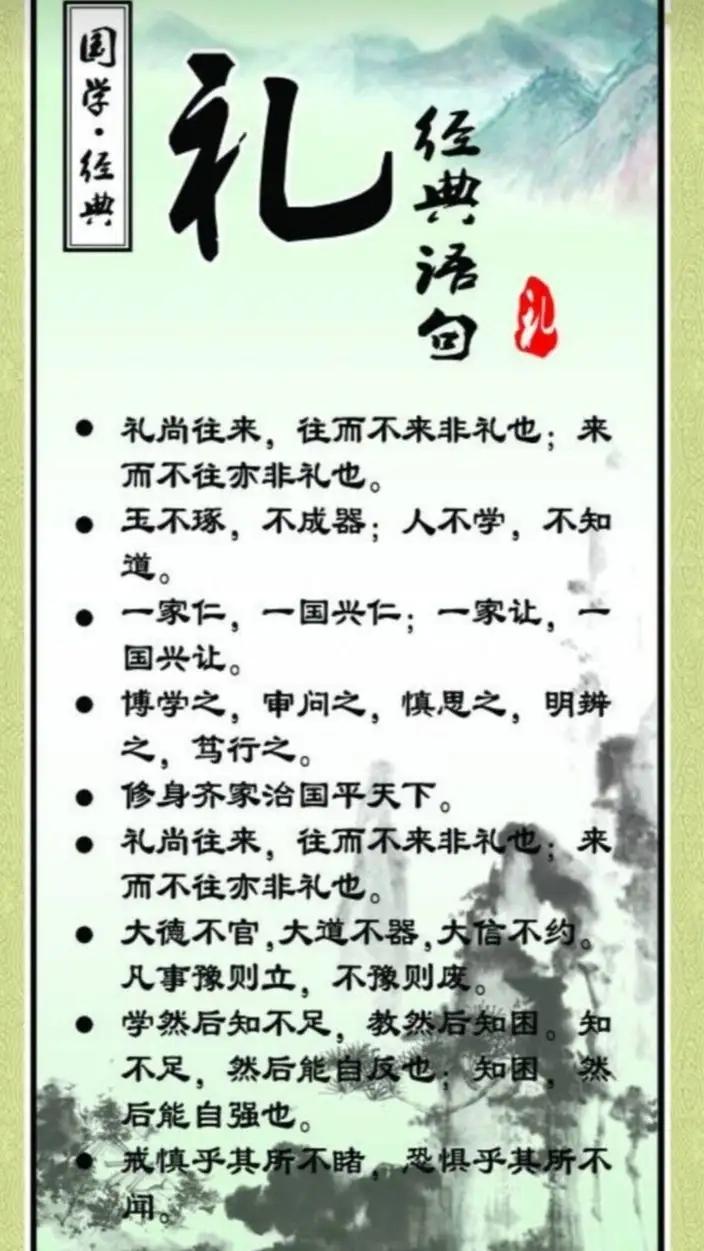 国学·经典
礼
经典语句
礼
礼尚往来，往而不来非礼也；来
而不往亦非礼也。
玉不琢，不成器；人不学，不知
道。
一家仁，一国兴仁；一家让，一
国兴让。
博学之，审问之，慎思之，明辨
之，笃行之。
修身齐家治国平天下。
礼尚往来，往而不来非礼也；来
而不往亦非礼也。
大德不官,大道不器,大信不约。
凡事豫则立，不豫则废。
学然后知不足，教然后知困。知
不足，然后能自反也；知困，然
后能自强也。
戒慎乎其所不睹，恐惧乎其所不
闻。